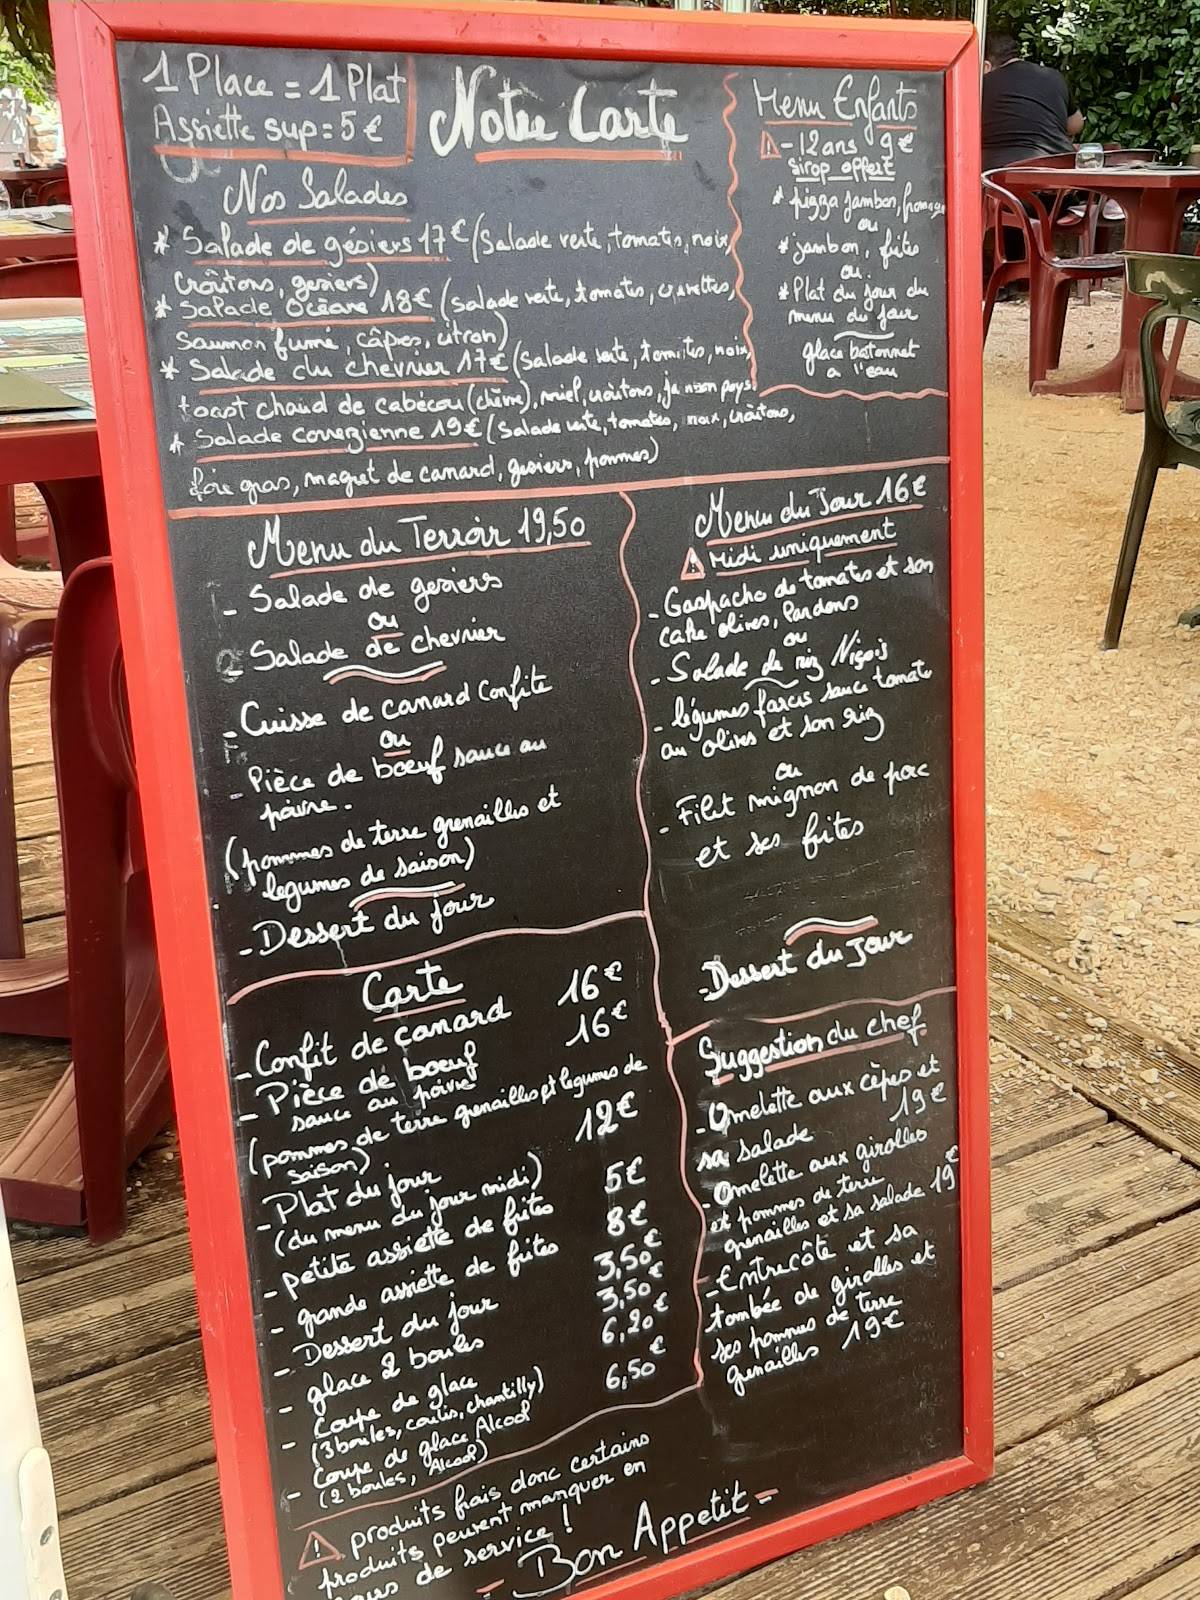 1 Place = 1 Plat
Assiette sup = 5 €
Notre Carte
Nos Salades
* Salade de gésiers 17€ (Salade verte, tomates, noix,
croûtons, gesiers)
* Salade Océane 18€ (salade verte, tomates, crevettes,
saumon fumé, câpres, citron)
* Salade du chevrier 17€ (Salade verte, tomates, noix,
toast chaud de cabécou (chèvre), miel, croûtons, jambon pays)
* Salade correzienne 19€ (Salade verte, tomates, noix, croûtons,
foie gras, magret de canard, gesiers, pommes)
Menu Enfants
⚠ - 12 ans 9€
sirop offert
* pizza jambon, fromage
ou
* jambon, frites
ou
* Plat du jour du
menu du jour
glace batonnet
a l'eau
Menu du Terroir 19,50
- Salade de gesiers
ou
- Salade de chevrier
- Cuisse de canard Confite
ou
- Pièce de boeuf sauce au
poivre.
(pommes de terre grenailles et
legumes de saison)
- Dessert du jour
Menu du Jour 16€
⚠ Midi uniquement
- Gaspacho de tomates et son
cake olives, lardons
ou
- Salade de riz Niçois
- légumes farcis sauce tomate
au olives et son riz
ou
- Filet mignon de porc
et ses frites
- Dessert du jour
Carte
- Confit de canard 16€
- Pièce de boeuf 16€
sauce au poivre
(pommes de terre grenailles et legumes de
saison)
- Plat du jour 12€
(du menu du jour midi)
- petite assiette de frites 5€
- grande assiette de frites 8€
- Dessert du jour 3,50€
- glace 2 boules 3,50€
- Coupe de glace 6,20€
(3 boules, coulis, chantilly)
- Coupe de glace Alcool 6,50€
(2 boules, Alcool)
Suggestion du chef
- Omelette aux cèpes et
sa salade 19€
- Omelette aux girolles
et pommes de terre
grenailles et sa salade 19€
- Entrecôte et sa
tombée de girolles et
ses pommes de terre
grenailles 19€
⚠ produits frais donc certains
produits peuvent manquer en
cours de service !
- Bon Appetit -